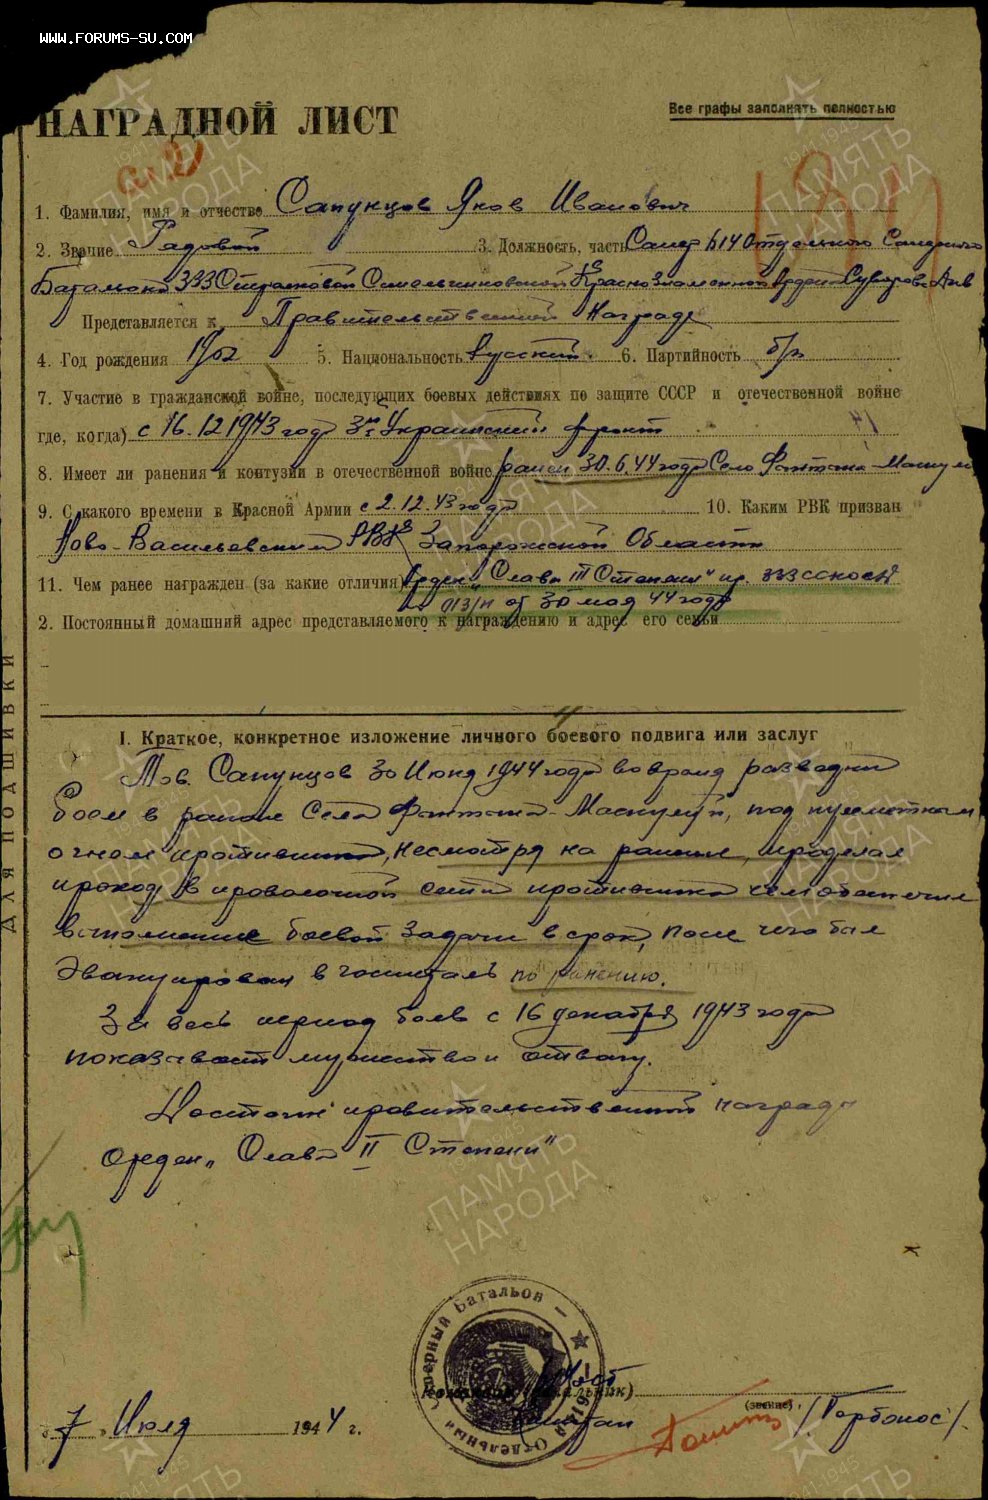 WWW.FORUMS-SU.COM
НАГРАДНОЙ ЛИСТ
Все графы заполнять полностью
1. Фамилия, имя и отчество Сапунцов Яков Иванович
2. Звание Рядовой 3. Должность, часть Сапер 614 Отдельного Саперного
Батальона 333 Стрелковой Синельниковской Краснознаменной Ордена Суворова Див
Представляется к Правительственной Награде
4. Год рождения 1902 5. Национальность Русский 6. Партийность б/п
7. Участие в гражданской войне, последующих боевых действиях по защите СССР и отечественной войне
где, когда) с 16.12 1943 года 3й Украинский фронт
8. Имеет ли ранения и контузии в отечественной войне ранен 30.6.44 года Село Фантана-Маскулуй
9. С какого времени в Красной Армии с 2.12.43 года 10. Каким РВК призван
Ново-Васильевским РВК Запорожской Области
11. Чем ранее награжден (за какие отличия) Орден "Слава III Степени" пр. 333 ССКОСД
№ 013/н от 30 мая 44 года
2. Постоянный домашний адрес представляемого к награждению и адрес его семьи
ДЛЯ ПОДШИВКИ
I. Краткое, конкретное изложение личного боевого подвига или заслуг
Тов. Сапунцов 30 Июня 1944 года во время разведки
боем в районе Села Фантана-Маскулуй, под пулеметным
огнем противника, несмотря на ранение, проделал
проход в проволочной сети противника чем обеспечил
выполнение боевой задачи в срок, после чего был
Эвакуирован в госпиталь по ранению.
За весь период боев с 16 декабря 1943 года
показывает мужество и отвагу.
Достоин правительственной награды
Орден "Слава II Степени"
Отдельный Саперный Батальон
Командир (начальник)
Капитан
(звание)
/Горбонос/.
"7" Июля 1944 г.
ПАМЯТЬ
НАРОДА
1941-1945